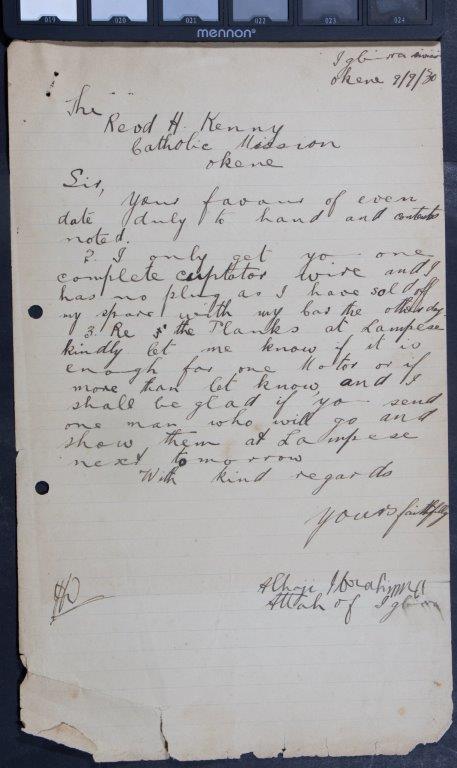 019 020 021 022 023 024
mennon
Igbirra
Okene 9/9/30
The
Revd H. Kenny
Catholic Mission
Okene
Sir,
Your favour of even
date duly to hand and contents
noted.
2. I only get yo one
complete wire and I
has no plug as I have sold off
my spare with my car the other day
3. Re the Planks at Lampese
kindly let me know if it is
enough for one Motor or if
more than let know, and I
shall be glad if yo send
one man who will go and
show them at Lampese
next tomorrow
With kind regards
Yours faithfully
Alhaji Ibrahima
Attah of Igbirra